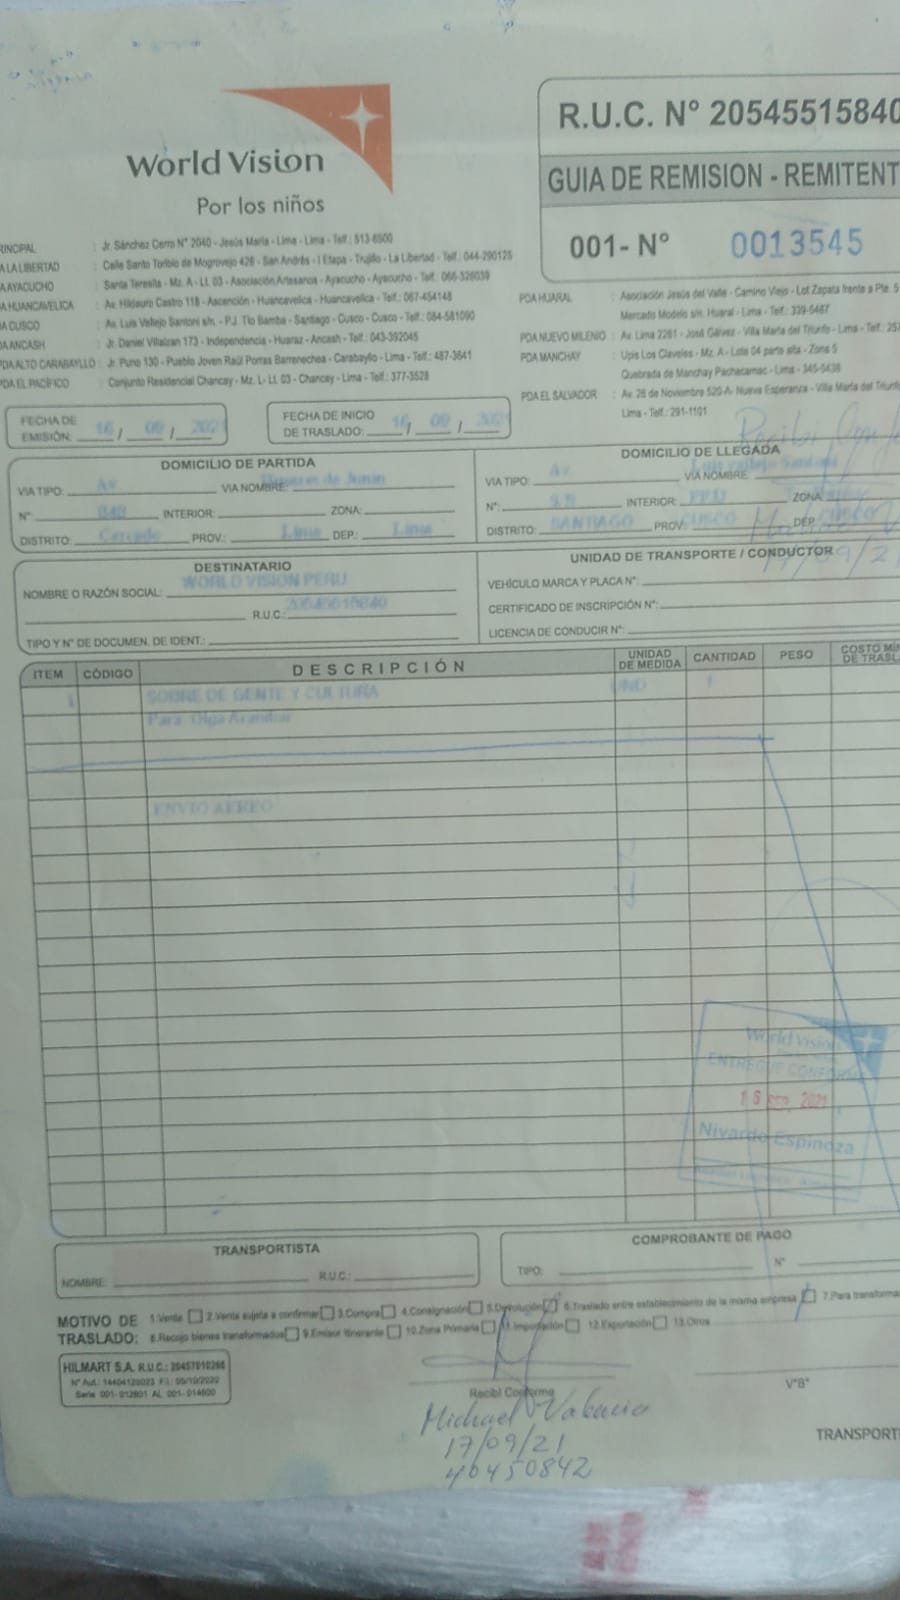 World Vision
Por los niños
R.U.C. N° 20545515840
GUIA DE REMISION - REMITENT
001- N° 0013545
RINCIPAL : Jr. Sánchez Cerro N° 2040 - Jesús María - Lima - Lima - Telf.: 513-6500
A LA LIBERTAD : Calle Santo Toribio de Mogrovejo 426 - San Andrés - I Etapa - Trujillo - La Libertad - Telf.: 044-290125
A AYACUCHO : Santa Teresita - Mz. A - Lt. 03 - Asociación Artesanos - Ayacucho - Ayacucho - Telf.: 066-326039
DA HUANCAVELICA : Av. Hildauro Castro 118 - Ascención - Huancavelica - Huancavelica - Telf.: 067-454148
DA CUSCO : Av. Luis Vellejo Santoni s/n. - P.J. Tio Bamba - Santiago - Cusco - Cusco - Telf.: 084-581090
DA ANCASH : Jr. Daniel Villaizan 173 - Independencia - Huaraz - Ancash - Telf.: 043-392045
PDA ALTO CARABAYLLO : Jr. Puno 130 - Pueblo Joven Raúl Porras Barrenechea - Carabayllo - Lima - Telf.: 487-3641
PDA EL PACÍFICO : Conjunto Residencial Chancay - Mz. L- Lt. 03 - Chancay - Lima - Telf.: 377-3528
PDA HUARAL : Asociación Jesús del Valle - Camino Viejo - Lot Zapata frente a Pte. 5
Mercado Modelo s/n. Huaral - Lima - Telf.: 339-5487
PDA NUEVO MILENIO : Av. Lima 2261 - José Gálvez - Villa María del Triunfo - Lima - Telf.: 257
PDA MANCHAY : Upis Los Claveles - Mz. A - Lote 04 parte alta - Zona 5
Quebrada de Manchay Pachacamac - Lima - 345-5438
PDA EL SALVADOR : Av. 26 de Noviembre 520-A- Nueva Esperanza - Villa María del Triunfo
Lima - Telf.: 291-1101
FECHA DE EMISIÓN: 16 / 09 / 2021
FECHA DE INICIO DE TRASLADO: 16 / 09 / 2021
Recibi Conf
DOMICILIO DE PARTIDA
VIA TIPO: Av. VIA NOMBRE: de Junin
N°: INTERIOR: ZONA:
DISTRITO: Cercado PROV.: Lima DEP.: Lima
DOMICILIO DE LLEGADA
VIA TIPO: Av. VIA NOMBRE: Luis Vallejo Santoni
N°: S.N INTERIOR: PPJJ ZONA:
DISTRITO: SANTIAGO PROV.: CUSCO DEP. CUSCO
17/09/21
DESTINATARIO
NOMBRE O RAZÓN SOCIAL: WORLD VISION PERU
R.U.C.: 20545515840
TIPO Y N° DE DOCUMEN. DE IDENT.:
UNIDAD DE TRANSPORTE / CONDUCTOR
VEHÍCULO MARCA Y PLACA N°:
CERTIFICADO DE INSCRIPCIÓN N°:
LICENCIA DE CONDUCIR N°:
ITEM CÓDIGO DESCRIPCIÓN UNIDAD DE MEDIDA CANTIDAD PESO COSTO MÍ DE TRASL
1 SOBRE DE GENTE Y CULTURA UND 1
Para: Olga
ENVIO AEREO
World Vision
ENTREGUE CONFORME
16 SEP. 2021
Nivardo Espinoza
TRANSPORTISTA
NOMBRE: R.U.C.:
COMPROBANTE DE PAGO
TIPO: N°
MOTIVO DE TRASLADO: 1.Venta 2.Venta sujeta a confirmar 3.Compra 4.Consignación 5.Devolución 6.Traslado entre establecimiento de la misma empresa 7.Para transforma
8.Recojo bienes transformados 9.Emisor Itinerante 10.Zona Primaria 11.Importación 12.Exportación 13.Otros
HILMART S.A. R.U.C.: 20457010266
N° Aut.: 14404129023 F.I.: 05/10/2020
Serie 001- 012601 AL 001-014600
Recibí Conforme
V°B°
Michael Valencia
17/09/21
40450842
TRANSPORTI